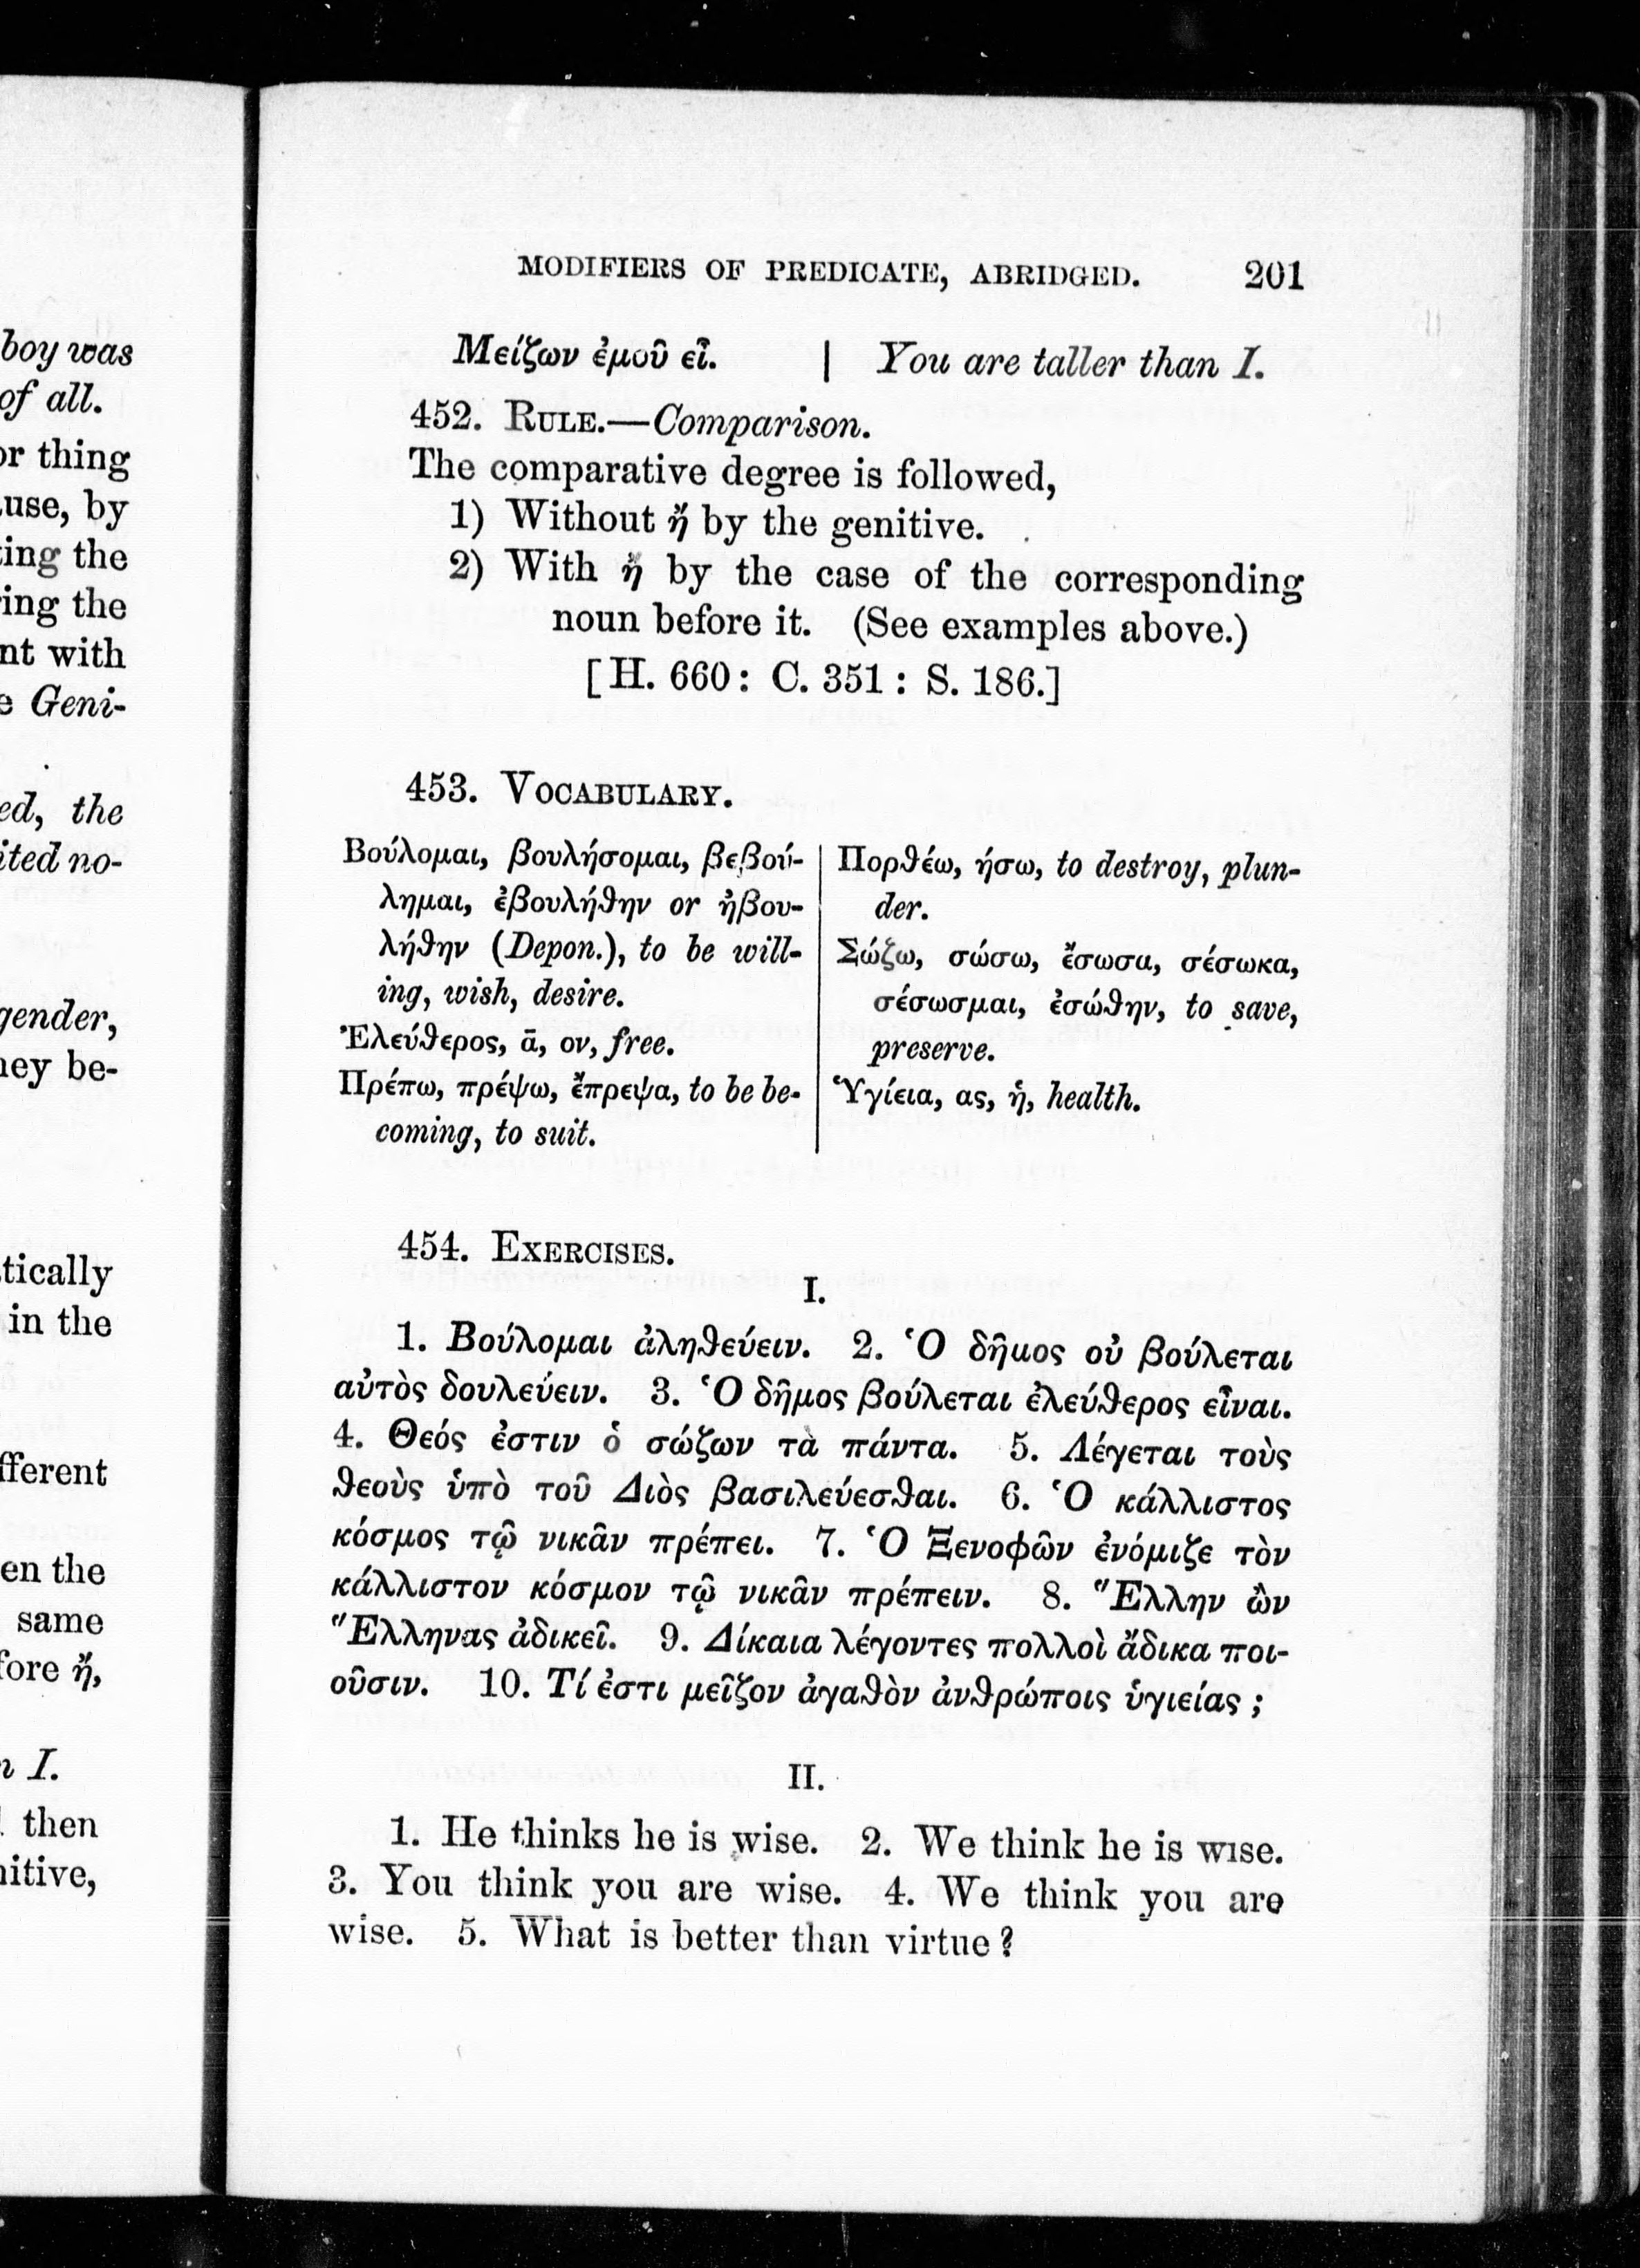 boy was
of all.
or thing
use, by
ing the
ing the
nt with
Geni-
ed, the
ited no-
gender,
hey be-
tically
in the
fferent
en the
same
fore ἤ,
I.
then
nitive,
MODIFIERS OF PREDICATE, ABRIDGED. 201
Μείζων ἐμοῦ εἶ. | You are taller than I.
452. RULE.—Comparison.
The comparative degree is followed,
1) Without ἤ by the genitive.
2) With ἤ by the case of the corresponding
noun before it. (See examples above.)
[H. 660: C. 351: S. 186.]
453. VOCABULARY.
Βούλομαι, βουλήσομαι, βεβού-
λημαι, ἐβουλήθην or ἠβου-
λήθην (Depon.), to be will-
ing, wish, desire.
Ἐλεύθερος, ᾱ, ον, free.
Πρέπω, πρέψω, ἔπρεψα, to be be-
coming, to suit.
Πορθέω, ήσω, to destroy, plun-
der.
Σώζω, σώσω, ἔσωσα, σέσωκα,
σέσωσμαι, ἐσώθην, to save,
preserve.
Ὑγίεια, ας, ἡ, health.
454. EXERCISES.
I.
1. Βούλομαι ἀληθεύειν. 2. Ὁ δῆμος οὐ βούλεται
αὐτὸς δουλεύειν. 3. Ὁ δῆμος βούλεται ἐλεύθερος εἶναι.
4. Θεός ἐστιν ὁ σώζων τὰ πάντα. 5. Λέγεται τοὺς
θεοὺς ὑπὸ τοῦ Διὸς βασιλεύεσθαι. 6. Ὁ κάλλιστος
κόσμος τῷ νικᾶν πρέπει. 7. Ὁ Ξενοφῶν ἐνόμιζε τὸν
κάλλιστον κόσμον τῷ νικᾶν πρέπειν. 8. Ἕλλην ὢν
Ἕλληνας ἀδικεῖ. 9. Δίκαια λέγοντες πολλοὶ ἄδικα ποι-
οῦσιν. 10. Τί ἐστι μεῖζον ἀγαθὸν ἀνθρώποις ὑγιείας ;
II.
1. He thinks he is wise. 2. We think he is wise.
3. You think you are wise. 4. We think you are
wise. 5. What is better than virtue?